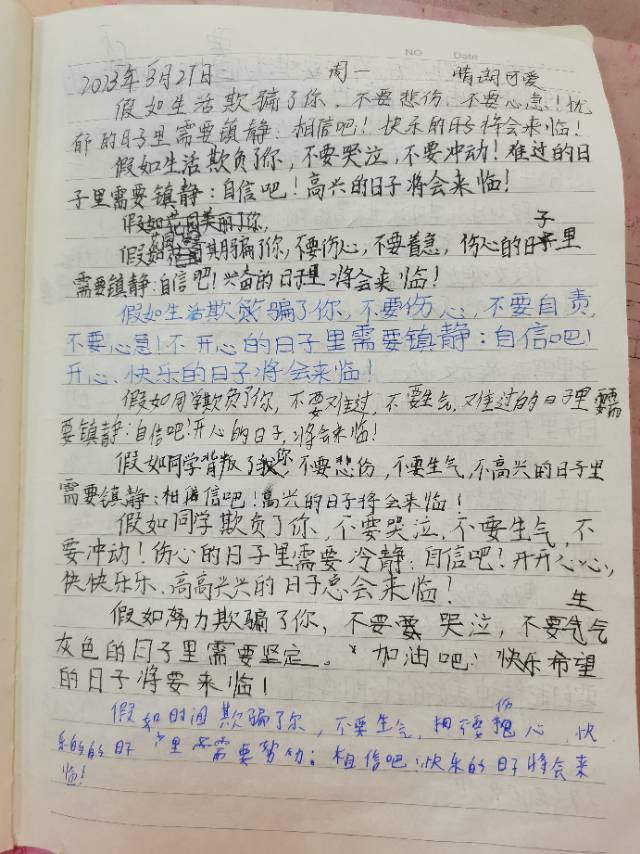 NO Date
2023年3月27日 周一 晴 湖可爱
假如生活欺骗了你，不要悲伤，不要心急！忧
郁的日子里需要镇静：相信吧！快乐的日子将会来临！
假如生活欺负了你，不要哭泣，不要冲动！难过的日
子里需要镇静：自信吧！高兴的日子将会来临！
假如花园美丽了你，
假如花言其月骗了你，不要伤心，不要着急，伤心的日子里
需要镇静：自信吧！兴奋的日子里将会来临！
假如生活欺骗了你，不要伤心，不要自责，
不要心急！不开心的日子里需要镇静：自信吧！
开心、快乐的日子将会来临！
假如同学欺负了你，不要难过，不要生气，难过的日子里需
要镇静：自信吧！开心的日子，将会来临！
假如同学背叛了你，不要悲伤，不要生气，不高兴的日子里
需要镇静：相信吧！高兴的日子将会来临！
假如同学欺负了你，不要哭泣，不要生气，不
要冲动！伤心的日子里需要冷静：自信吧！开开心心，
快快乐乐、高高兴兴的日子总会来临！
假如努力欺骗了你，不要哭泣，不要生气
灰色的日子里需要坚定。加油吧！快乐希望
的日子将要来临！
假如时间欺骗了你，不要生气，不要伤心，快
乐的的日子里需要努力：相信吧！快乐的日子将会来
临！